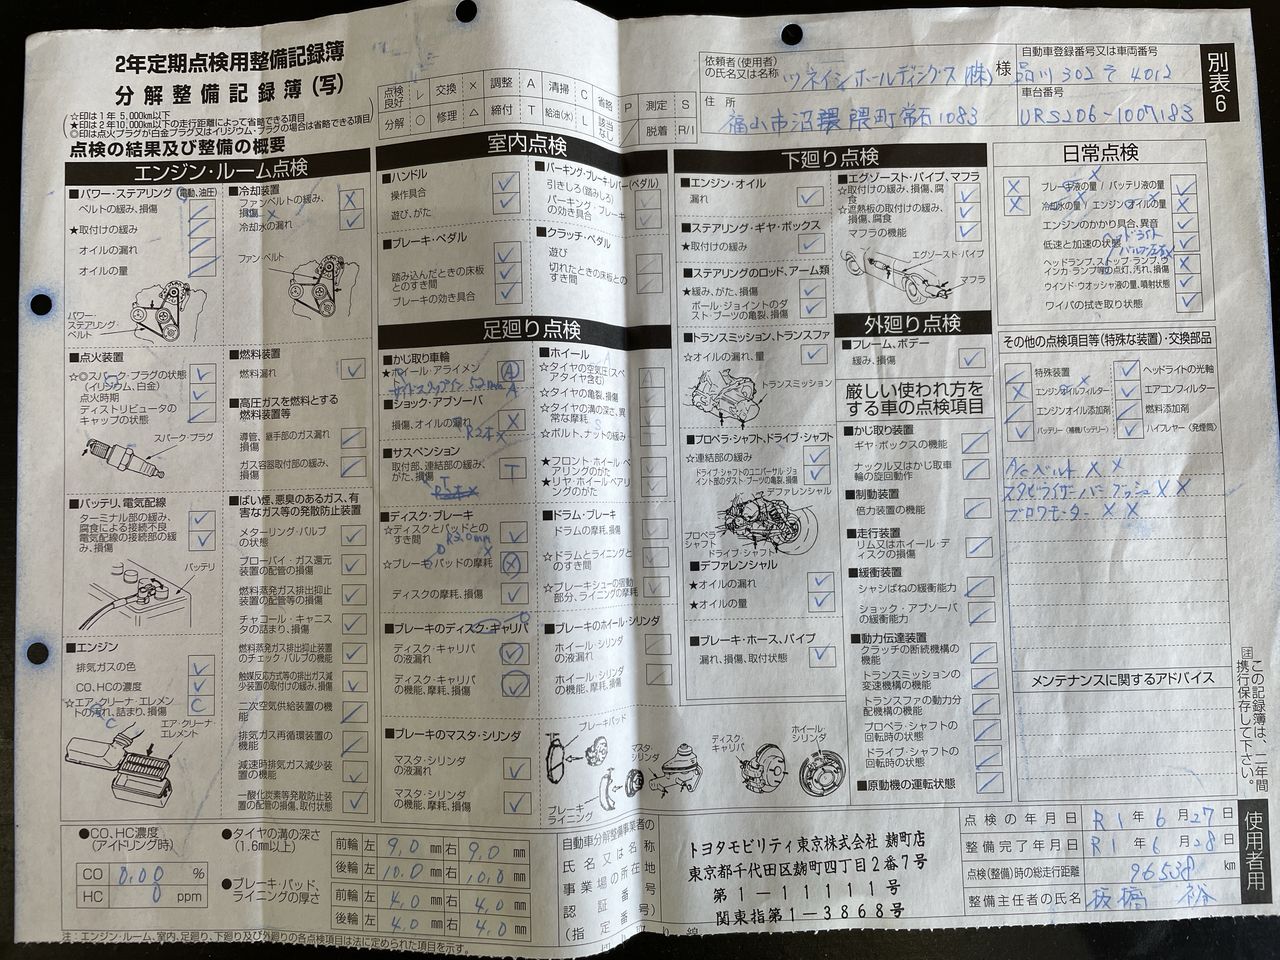 2年定期点検用整備記録簿
分解整備記録簿(写)
☆印は1年 5,000km以下
★印は2年10,000km以下の走行距離によって省略できる項目
◎印は点火プラグが白金プラグ又はイリジウム・プラグの場合は省略できる項目
点検良好 レ 交換 × 調整 A 清掃 C 省略 P 測定 S
分解 ○ 修理 △ 締付 T 給油(水) L 該当なし / 脱着 R/I
依頼者(使用者)の氏名又は名称 ツネイシホールディングス(株) 様
住所 福山市沼隈町常石1083
自動車登録番号又は車両番号
品川 302 そ 4012
車台番号
URS206-1007183
別表6
点検の結果及び整備の概要
エンジン・ルーム点検
■パワー・ステアリング(電動、油圧)
ベルトの緩み、損傷
★取付けの緩み
オイルの漏れ
オイルの量
パワー・ステアリング・ベルト
■点火装置
☆◎スパーク・プラグの状態
(イリジウム、白金)
点火時期
ディストリビュータのキャップの状態
スパーク・プラグ
■バッテリ、電気配線
ターミナル部の緩み、腐食による接続不良
電気配線の接続部の緩み、損傷
バッテリ
■エンジン
排気ガスの色
CO、HCの濃度
☆エア・クリーナ・エレメントの汚れ、詰まり、損傷 C
エア・クリーナ・エレメント
■冷却装置
ファンベルトの緩み、損傷 X
冷却水の漏れ
ファン・ベルト
■燃料装置
燃料漏れ
■高圧ガスを燃料とする燃料装置等
導管、継手部のガス漏れ、損傷
ガス容器取付部の緩み、損傷
■ばい煙、悪臭のあるガス、有害なガス等の発散防止装置
メターリング・バルブの状態
ブローバイ・ガス還元装置の配管の損傷
燃料蒸発ガス排出抑止装置の配管等の損傷
チャコール・キャニスタの詰まり、損傷
燃料蒸発ガス排出抑止装置のチェック・バルブの機能
触媒反応方式等の排出ガス減少装置の取付けの緩み、損傷
二次空気供給装置の機能
排気ガス再循環装置の機能
減速時排気ガス減少装置の機能
一酸化炭素等発散防止装置の配管の損傷、取付状態
室内点検
■ハンドル
操作具合
遊び、がた
■ブレーキ・ペダル
遊び
踏み込んだときの床板とのすき間
ブレーキの効き具合
■パーキング・ブレーキ・レバー(ペダル)
引きしろ(踏みしろ)
パーキング・ブレーキの効き具合
■クラッチ・ペダル
遊び
切れたときの床板とのすき間
足廻り点検
■かじ取り車輪
★ホイール・アライメント A
サイドスリップ イン 5.2mm A
■ショック・アブソーバ
損傷、オイルの漏れ X
R2本 X
■サスペンション
取付部、連結部の緩み、がた、損傷 T
■ディスク・ブレーキ
☆ディスクとパッドとのすき間
R2.0mm
☆ブレーキ・パッドの摩耗 X
ディスクの摩耗、損傷
■ブレーキのディスク・キャリパ
ディスク・キャリパの液漏れ
ディスク・キャリパの機能、摩耗、損傷
■ブレーキのマスタ・シリンダ
マスタ・シリンダの液漏れ
マスタ・シリンダの機能、摩耗、損傷
■ホイール
☆タイヤの空気圧(スペアタイヤ含む)
☆タイヤの亀裂、損傷
☆タイヤの溝の深さ、異常な摩耗
☆ボルト、ナットの緩み
★フロント・ホイール・ベアリングのがた
★リヤ・ホイール・ベアリングのがた
■ドラム・ブレーキ
ドラムの摩耗、損傷
☆ドラムとライニングとのすき間
☆ブレーキシューの摺動部分、ライニングの摩耗
■ブレーキのホイール・シリンダ
ホイール・シリンダの液漏れ
ホイール・シリンダの機能、摩耗、損傷
ブレーキパッド
ブレーキライニング
マスタ・シリンダ
ディスク・キャリパ
ホイール・シリンダ
下廻り点検
■エンジン・オイル
漏れ
■ステアリング・ギヤ・ボックス
★取付けの緩み
■ステアリングのロッド、アーム類
★緩み、がた、損傷
ボール・ジョイントのダスト・ブーツの亀裂、損傷
■トランスミッション、トランスファ
☆オイルの漏れ、量
トランスミッション
■プロペラ・シャフト、ドライブ・シャフト
☆連結部の緩み
ドライブ・シャフトのユニバーサル・ジョイント部のダスト・ブーツの亀裂、損傷
デファレンシャル
プロペラ・シャフト
ドライブ・シャフト
■デファレンシャル
★オイルの漏れ
★オイルの量
■ブレーキ・ホース、パイプ
漏れ、損傷、取付状態
■エグゾースト・パイプ、マフラ
☆取付けの緩み、損傷、腐食
☆遮熱板の取付けの緩み、損傷、腐食
マフラの機能
エグゾースト・パイプ
マフラ
外廻り点検
■フレーム、ボデー
緩み、損傷
厳しい使われ方をする車の点検項目
■かじ取り装置
ギヤ・ボックスの機能
ナックル又はかじ取り車輪の旋回動作
■制動装置
倍力装置の機能
■走行装置
リム又はホイール・ディスクの損傷
■緩衝装置
シャシばねの緩衝能力
ショック・アブソーバの緩衝能力
■動力伝達装置
クラッチの断続機構の機能
トランスミッションの変速機構の機能
トランスファの動力分配機構の機能
プロペラ・シャフトの回転時の状態
ドライブ・シャフトの回転時の状態
■原動機の運転状態
日常点検
ブレーキ液の量 / バッテリ液の量
冷却水の量 / エンジンオイルの量
エンジンのかかり具合、異音
低速と加速の状態
ヘッドランプ、ストップ・ランプ、ウインカ・ランプ等の点灯、汚れ、損傷
ウインド・ウォッシャ液の量、噴射状態
ワイパの拭き取り状態
その他の点検項目等(特殊な装置)・交換部品
特殊装置 ヘッドライトの光軸
エンジンオイルフィルター エアコンフィルター
エンジンオイル添加剤 燃料添加剤
バッテリー(補機バッテリー) ハイフレヤー(発煙筒)
ACベルト X X
スタビライザーバー ブッシュ X X
ブロワモーター X X
メンテナンスに関するアドバイス
注 この記録簿は、二年間携行保存して下さい。
使用者用
●CO、HC濃度(アイドリング時)
CO 0.00 %
HC 0 ppm
●タイヤの溝の深さ(1.6mm以上)
前輪 左 9.0 mm 右 9.0 mm
後輪 左 10.0 mm 右 10.0 mm
●ブレーキ・パッド、ライニングの厚さ
前輪 左 4.0 mm 右 4.0 mm
後輪 左 4.0 mm 右 4.0 mm
トヨタモビリティ東京株式会社 麹町店
東京都千代田区麹町四丁目2番7号
第1-11111号
関東指第1-3868号
点検の年月日 R1年 6月27日
整備完了年月日 R1年 6月28日
点検(整備)時の総走行距離 96538 km
整備主任者の氏名 板橋 裕
注:エンジン・ルーム、室内、足廻り、下廻り及び外廻りの各点検項目は法に定められた項目を示す。